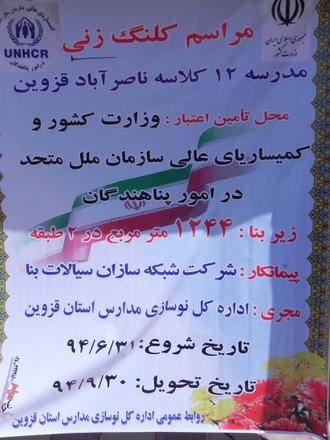 کمیساریای عالی سازمان ملل متحد
UNHCR
در امور پناهندگان
جمهوری اسلامی ایران
وزارت کشور
مراسم کلنگ زنی
مدرسه ۱۲ کلاسه ناصرآباد قزوین
محل تأمین اعتبار: وزارت کشور و
کمیساریای عالی سازمان ملل متحد
در امور پناهندگان
زیر بنا: ۱۲۴۴ متر مربع در ۲ طبقه
پیمانکار: شرکت شبکه سازان سیالات بنا
مجری: اداره کل نوسازی مدارس استان قزوین
تاریخ شروع: ۹۴/۶/۳۱
تاریخ تحویل: ۹۴/۹/۳۰
روابط عمومی اداره کل نوسازی مدارس استان قزوین